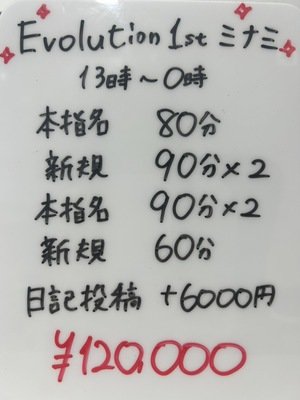 Evolution 1st ミナミ
13時～0時
本指名 80分
新規 90分×2
本指名 90分×2
新規 60分
日記投稿 +6000円
¥120,000